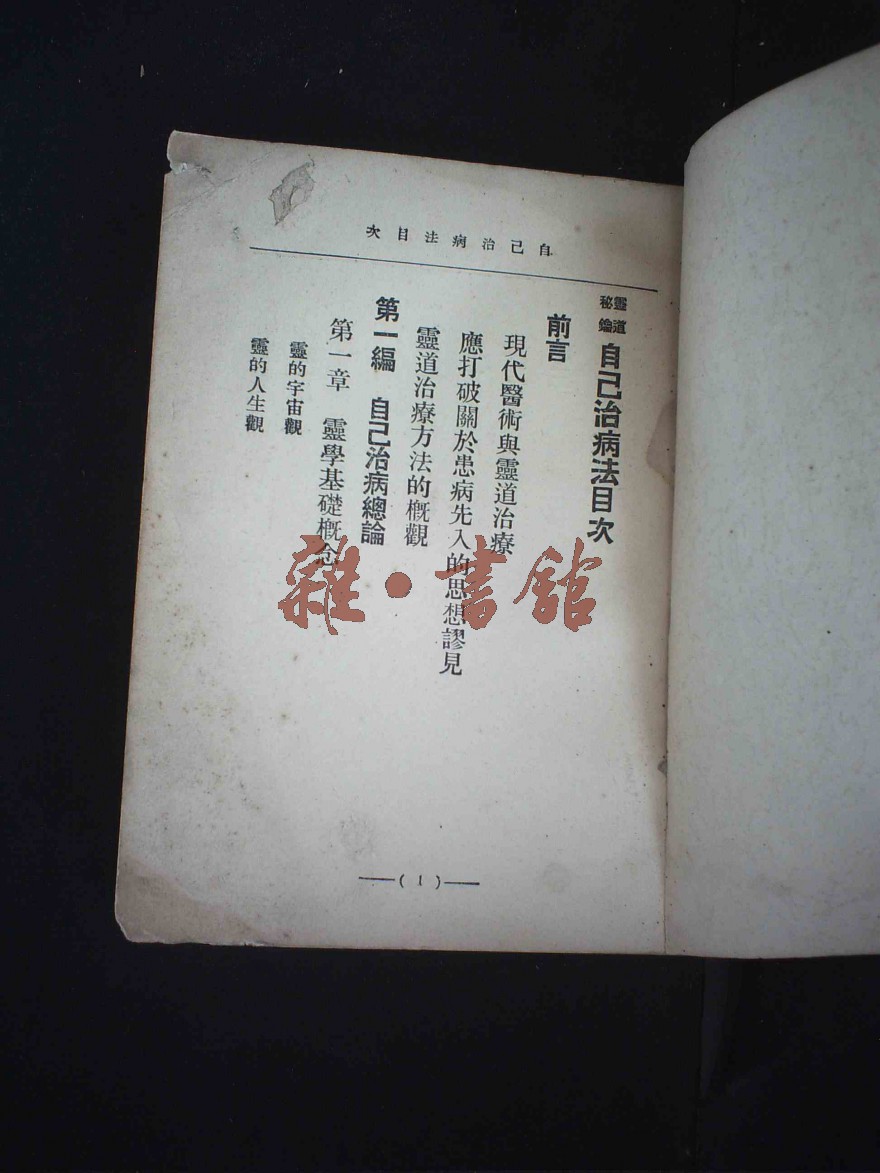 自己治病法目次
靈道秘鑰
自己治病法目次
前言
現代醫術與靈道治療
應打破關於患病先入的思想謬見
靈道治療方法的概觀
第一編 自己治病總論
第一章 靈學基礎概念
靈的宇宙觀
靈的人生觀
(1)
雜·書館